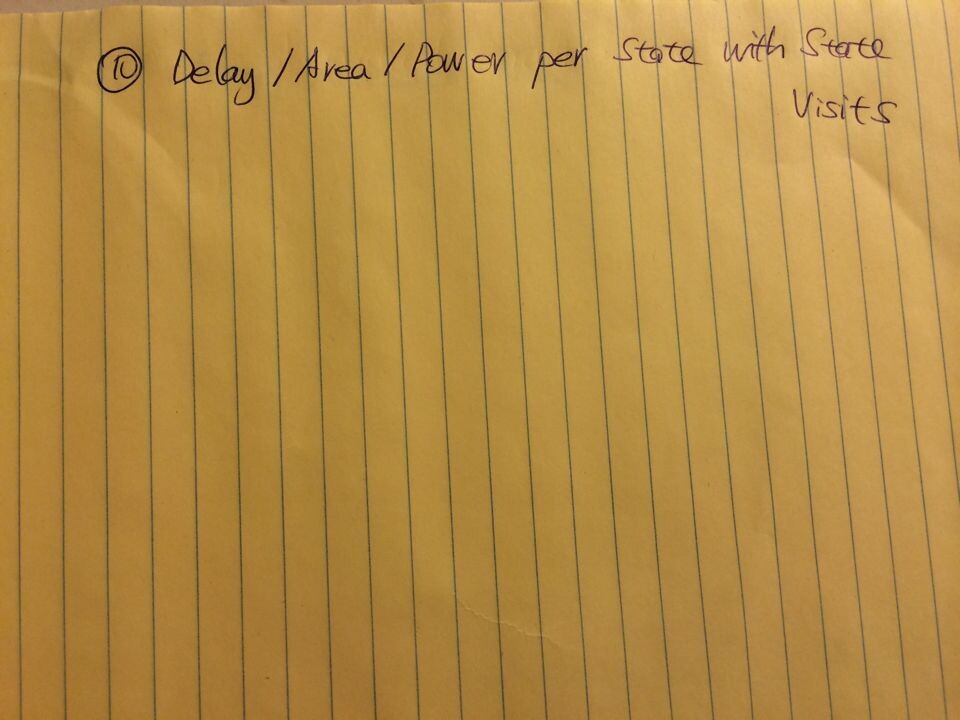 ⑩ Delay / Area / Power per State with State
Visits